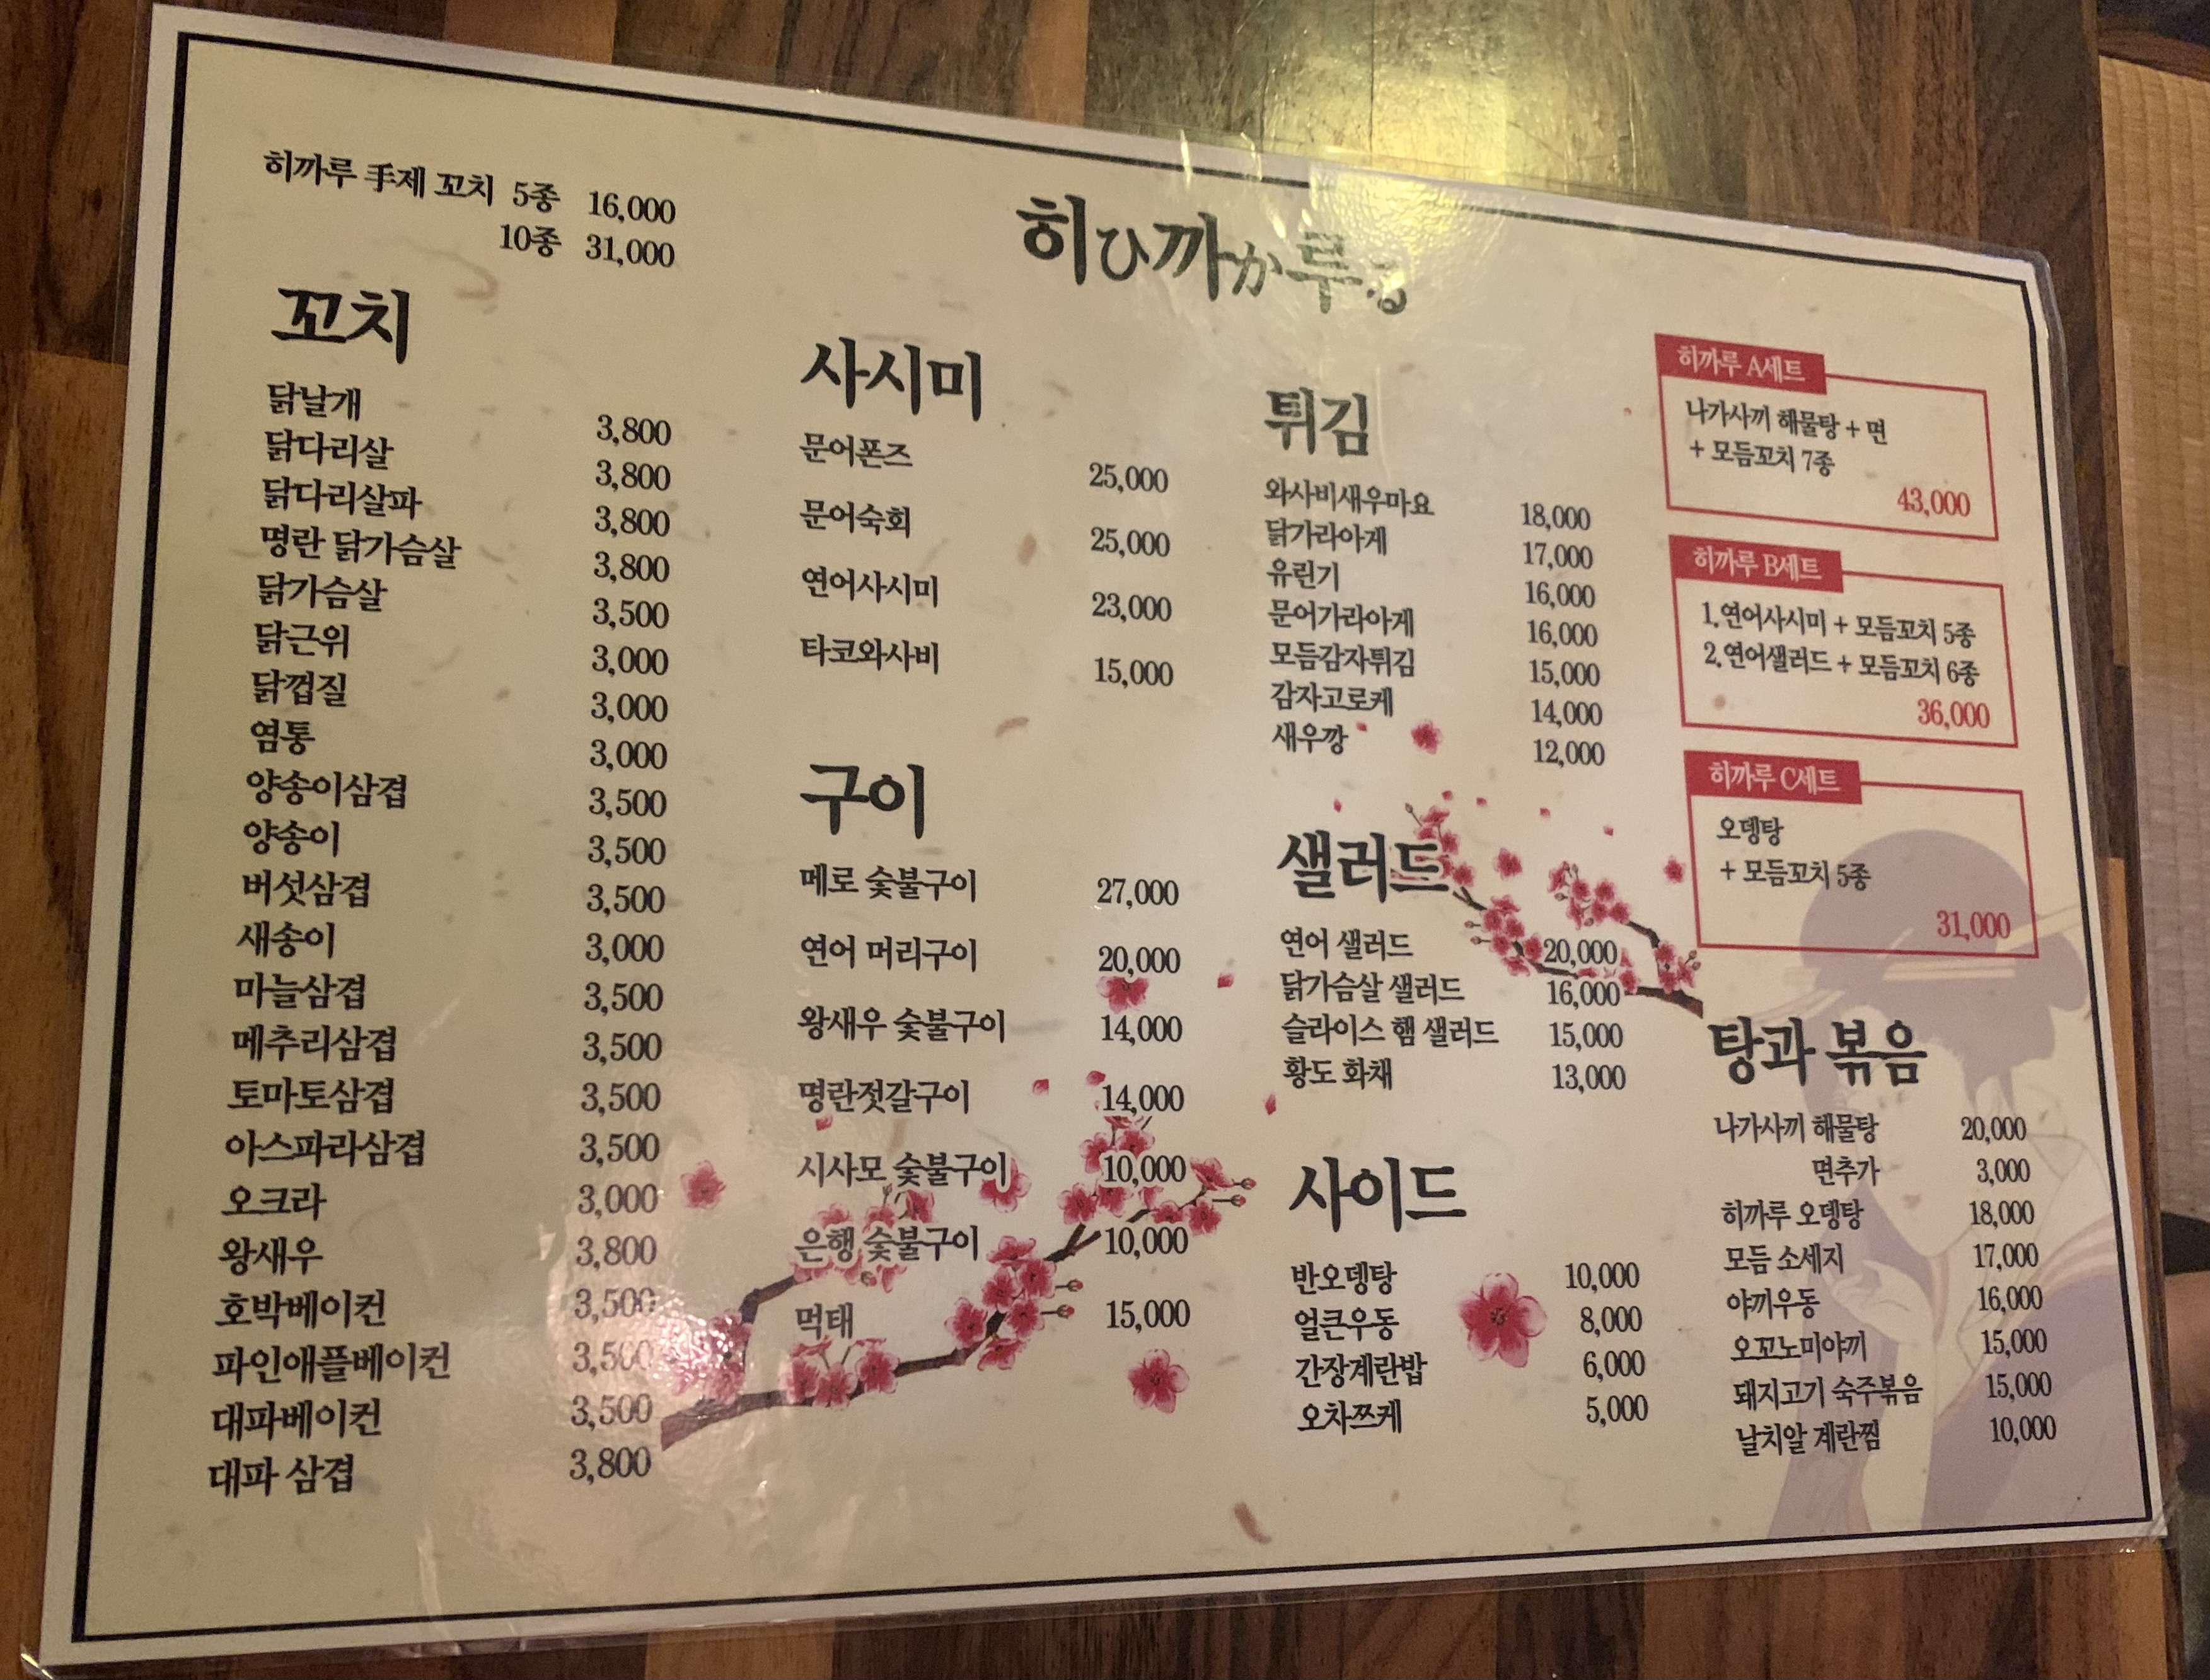 히까루 手제 꼬치 5종 16,000
10종 31,000
히ひ까か루る
꼬치
닭날개 3,800
닭다리살 3,800
닭다리살파 3,800
명란 닭가슴살 3,800
닭가슴살 3,500
닭근위 3,000
닭껍질 3,000
염통 3,000
양송이삼겹 3,500
양송이 3,500
버섯삼겹 3,500
새송이 3,000
마늘삼겹 3,500
메추리삼겹 3,500
토마토삼겹 3,500
아스파라삼겹 3,500
오크라 3,000
왕새우 3,800
호박베이컨 3,500
파인애플베이컨 3,500
대파베이컨 3,500
대파 삼겹 3,800
사시미
문어폰즈 25,000
문어숙회 25,000
연어사시미 23,000
타코와사비 15,000
구이
메로 숯불구이 27,000
연어 머리구이 20,000
왕새우 숯불구이 14,000
명란젓갈구이 14,000
시사모 숯불구이 10,000
은행 숯불구이 10,000
먹태 15,000
튀김
와사비새우마요 18,000
닭가라아게 17,000
유린기 16,000
문어가라아게 16,000
모듬감자튀김 15,000
감자고로케 14,000
새우깡 12,000
샐러드
연어 샐러드 20,000
닭가슴살 샐러드 16,000
슬라이스 햄 샐러드 15,000
황도 화채 13,000
사이드
반오뎅탕 10,000
얼큰우동 8,000
간장계란밥 6,000
오차쯔케 5,000
히까루 A세트
나가사끼 해물탕 + 면
+ 모듬꼬치 7종
43,000
히까루 B세트
1.연어사시미 + 모듬꼬치 5종
2.연어샐러드 + 모듬꼬치 6종
36,000
히까루 C세트
오뎅탕
+ 모듬꼬치 5종
31,000
탕과 볶음
나가사끼 해물탕 20,000
면추가 3,000
히까루 오뎅탕 18,000
모듬 소세지 17,000
야끼우동 16,000
오꼬노미야끼 15,000
돼지고기 숙주볶음 15,000
날치알 계란찜 10,000